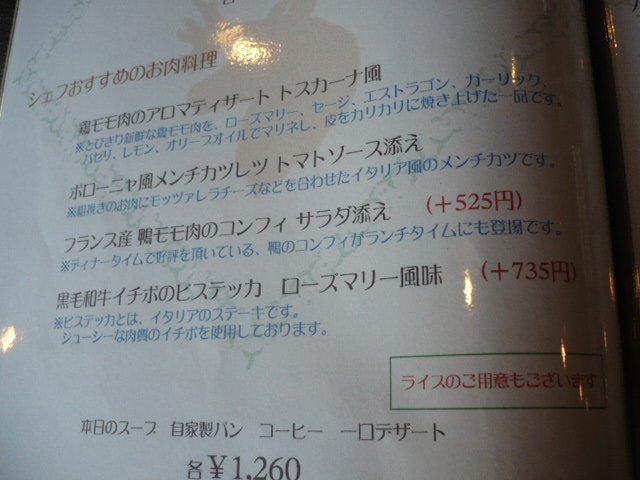 シェフおすすめのお肉料理
鶏モモ肉のアロマティザート トスカーナ風
※とびきり新鮮な鶏モモ肉を、ローズマリー、セージ、エストラゴン、ガーリック、
パセリ、レモン、オリーブオイルでマリネし、皮をカリカリに焼き上げた一品です。
ボローニャ風メンチカツレツ トマトソース添え
※粗挽きのお肉にモッツァレラチーズなどを合わせたイタリア風のメンチカツです。
フランス産 鴨モモ肉のコンフィ サラダ添え (+525円)
※ディナータイムで好評を頂いている、鴨のコンフィがランチタイムにも登場です。
黒毛和牛イチボのビステッカ ローズマリー風味 (+735円)
※ビステッカとは、イタリアのステーキです。
ジューシーな肉質のイチボを使用しております。
ライスのご用意もございます
本日のスープ 自家製パン コーヒー 一口デザート
各¥1,260